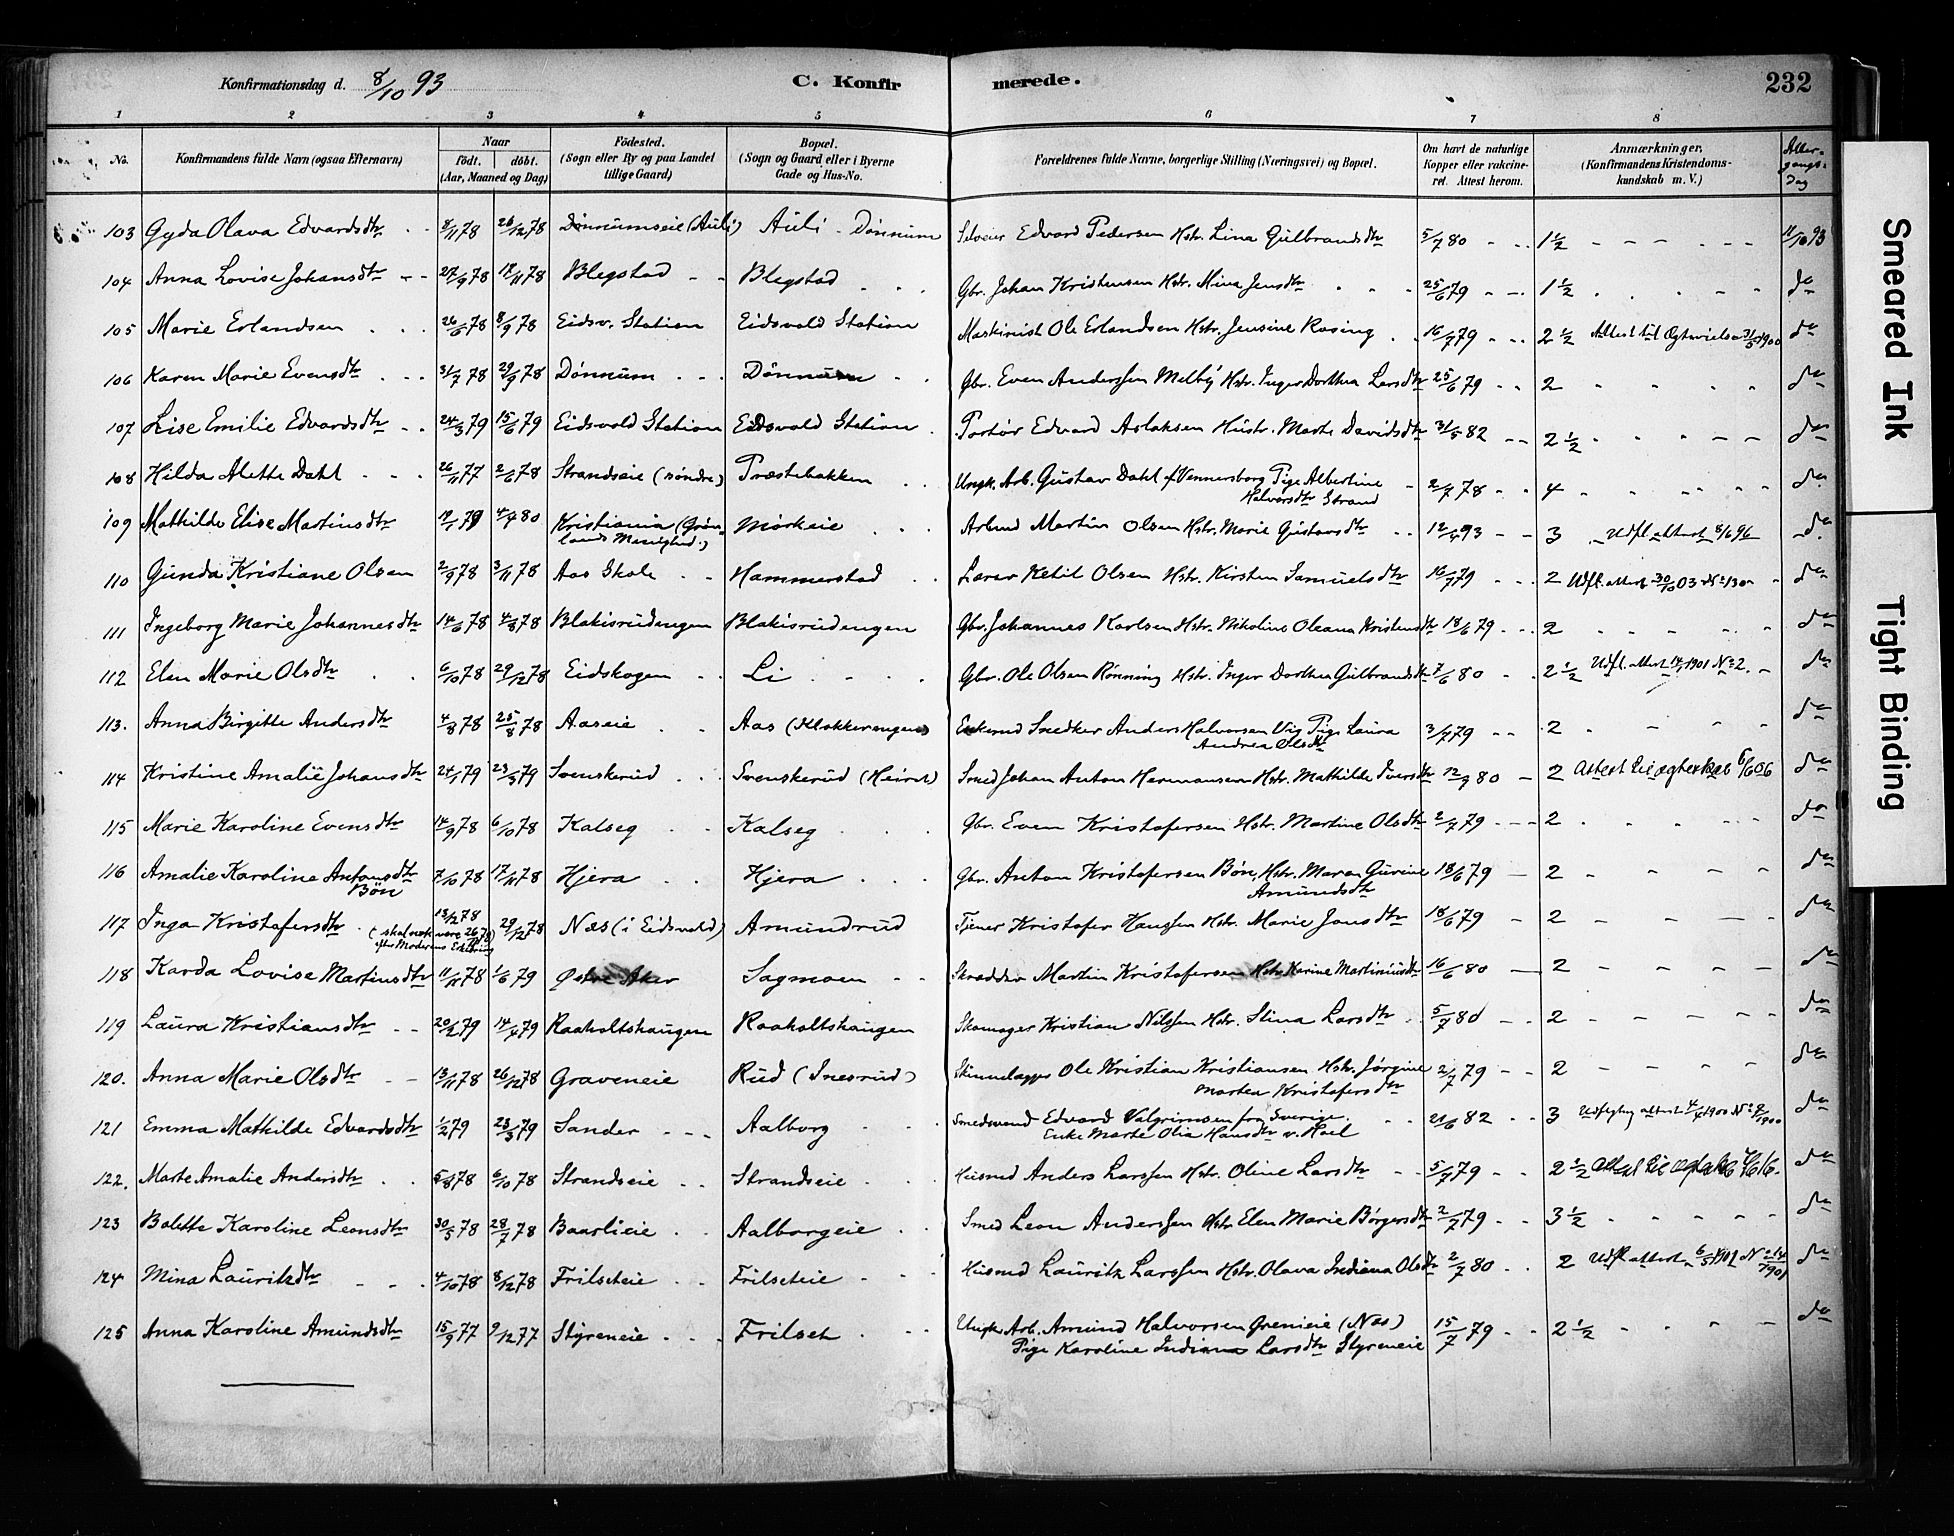 Konfirmationsdag d. 8/10 93
C. Konfirmerede.
232
1 2 3 4 5 6 7 8
No. | Konfirmandens fulde Navn (ogsaa Efternavn) | Naar födt. döbt. (Aar, Maaned og Dag) | Födested. (Sogn eller By og paa Landet tillige Gaard) | Bopæl. (Sogn og Gaard, eller i Byerne Gade og Hus-No. | Forældrenes fulde Navne, borgerlige Stilling (Næringsvei) og Bopæl. | Om havt de naturlige Kopper eller vakcineret. Attest herom. | Anmærkninger. (Konfirmandens Kristendomskundskab m. V.) | Altergangs-Dag
103 Gyda Olava Edvardsdtr 8/11 78 26/12 78 Dönnumseie (Auli) Auli - Dönnum Selveier Edvard Pedersen Hstr. Lina Gulbrandsdtr 5/7 80 1 1/2 11/10 93
104 Anna Lovise Johansdtr 27/9 78 17/11 78 Blegstad Blegstad Gbr. Johan Kristensen Hstr. Mina Jensdtr 25/6 79 1 1/2 do
105 Marie Erlandsen 26/6 78 8/9 78 Eidsv. Station Eidsvold Station Maskinist Ole Erlandsen Hstr. Jensine Rosing 16/7 79 2 1/2 Attest til Ægtevielse 31/5 1900 do
106 Karen Marie Evensdtr 31/7 78 29/9 78 Dönnum Dönnum Gbr. Even Anderssen Melby Hstr. Inger Dorthea Larsdtr 25/6 79 2 do
107 Lise Emilie Edvardsdtr 24/3 79 15/6 79 Eidsvold Station Eidsvold Station Portör Edvard Aslaksen Hustr. Marte Davidsdtr 31/5 82 2 1/2 do
108 Hilda Alette Dahl 26/11 77 2/6 78 Strandseie (söndre) Præstebakken Ungk. Arb. Gustav Dahl af Vennersborg Pige Albertine
Halvorsdtr Strand 2/7 78 4 do
109 Mathilde Elise Martinsdtr 4/4 80 Kristiania (Grön-
lands Menighed.) Mörkeie Arbmd Martin Olsen Hstr. Marie Gustavsdtr 12/4 93 3 Udfl. attest 8/6 96 do
110 Gunda Kristiane Olsen 2/9 78 3/11 78 Aas Skole Hammerstad Lærer Ketil Olsen Hstr. Kirsten Samuelsdtr 16/7 79 2 Udfl. attest 30/10 03 No 130 do
111 Ingeborg Marie Johannesdtr 14/6 78 4/8 78 Blakisrudengen Blakisrudengen Gbr. Johannes Karlsen Hstr. Nikoline Oleana Kristensdtr 18/6 79 2 do
112 Elen Marie Olsdtr 6/10 78 29/12 78 Eidskogen Li Gbr. Ole Olsen Rönning Hstr. Inger Dorthea Gulbrandsdtr 7/6 80 2 1/2 Udfl. attest 1901 No 2. do
113. Anna Birgitte Andersdtr 4/8 78 25/8 78 Aaseie Aas (Klokkerengen) Enkemd Snedker Anders Halvorsen Vig Pige Laura
Andrea Olsdtr 3/7 79 2 do
114 Kristine Amalie Johansdtr 24/1 79 23/3 79 Svenskerud Svenskerud Smed Johan Anton Hermansen Hstr. Mathilde Iversdtr 12/9 80 2 Attest til ægteskab 6/6 06 do
115 Marie Karoline Evensdtr 14/9 78 6/10 78 Kalseg Kalseg Gbr. Even Kristofersen Hstr. Martine Olsdtr 2/7 79 2 do
116 Amalie Karoline Antonsdtr
Bön 7/10 78 17/11 78 Hjera Hjera Gbr. Anton Kristofersen Bön, Hstr. Maren Gurine
Amundsdtr 18/6 79 2 do
117 Inga Kristofersdtr 13/12 78 (skal nok være 26/10 78
efter Moderens Erklæring) 29/12 78 Næs (i Eidsvold) Amundrud Tjener Kristofer Hanssen Hstr. Marie Jonsdtr 18/6 79 2 do
118 Karda Lovise Martinsdtr 11/11 78 1/6 79 Østre Aker Sagmoen Skrædder Martin Kristofersen Hstr Karine Martiniusdtr 16/6 80 2 do
119 Laura Kristiansdtr 20/2 79 14/4 79 Raaholtshaugen Raaholtshaugen Skomager Kristian Nilssen Hstr. Stina Larsdtr 5/7 80 2 do
120. Anna Marie Olsdtr 13/11 78 26/12 78 Graveneie Rud (Inesrud) Ole Kristian Kristiansen Hstr. Jörgine
Martea Kristofersdtr 2/7 79 2 do
121 Emma Mathilde Edvardsdtr 1/2 79 23/3 79 Sander Aalborg Smedsvend Edvard Valgrimsen fra Sverige.
Enke Marte Olia Hansdtr v. Hoel 21/6 82 3 attest 4/4 1900 do
122. Marte Amalie Andersdtr 5/8 78 6/10 78 Strandseie Strandseie Husmd Anders Larssen Hstr. Oline Larsdtr 5/7 79 2 1/2 Attest til do
123 Bolette Karoline Leonsdtr 30/5 78 28/7 78 Baarlieie Aalborgeie Smed Leon Anderssen Hstr Elen Marie Börgersdtr 2/7 79 3 1/2 do
124 Mina Lauritzdtr 4/10 78 8/12 78 Frilseteie Frilseteie Husmd Lauritz Larssen Hstr. Olava Indiana Olsdtr 2/7 80 2 Udfl. attest 6/5 1901 No 214/1901 do
125 Anna Karoline Amundsdtr 15/9 77 9/12 77 Styreneie Frilset Ungk. Arb. Amund Halvorsen Grenieie (Næs)
Pige Karoline Indiana Larsdtr Styreneie 15/7 79 2 1/2 do
Smeared Ink
Tight Binding